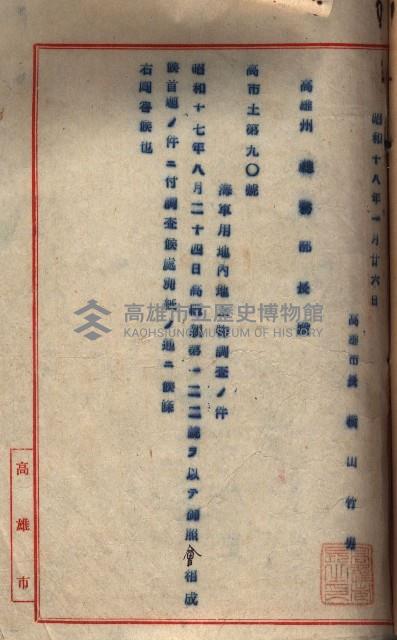 昭和十八年一月廿六日
高雄市長 横山竹男
高雄州 總務部長殿
高市土第九〇號
海軍用地內地 調查ノ件
昭和十七年八月二十四日高 第一二二號ヲ以テ御照會相成
候首題ノ件ニ付調查候處 通ニ候條
右回答候也
高雄市
高雄市立歷史博物館
KAOHSIUNG MUSEUM OF HISTORY